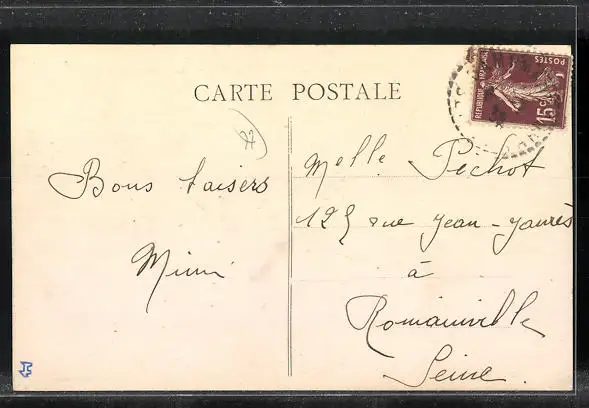 CARTE POSTALE
POSTES
REPUBLIQUE FRANÇAISE
15c
77
Bons baisers
Mimi
Melle Pichot
125 rue Jean-Jaurès
à
Romainville
Seine